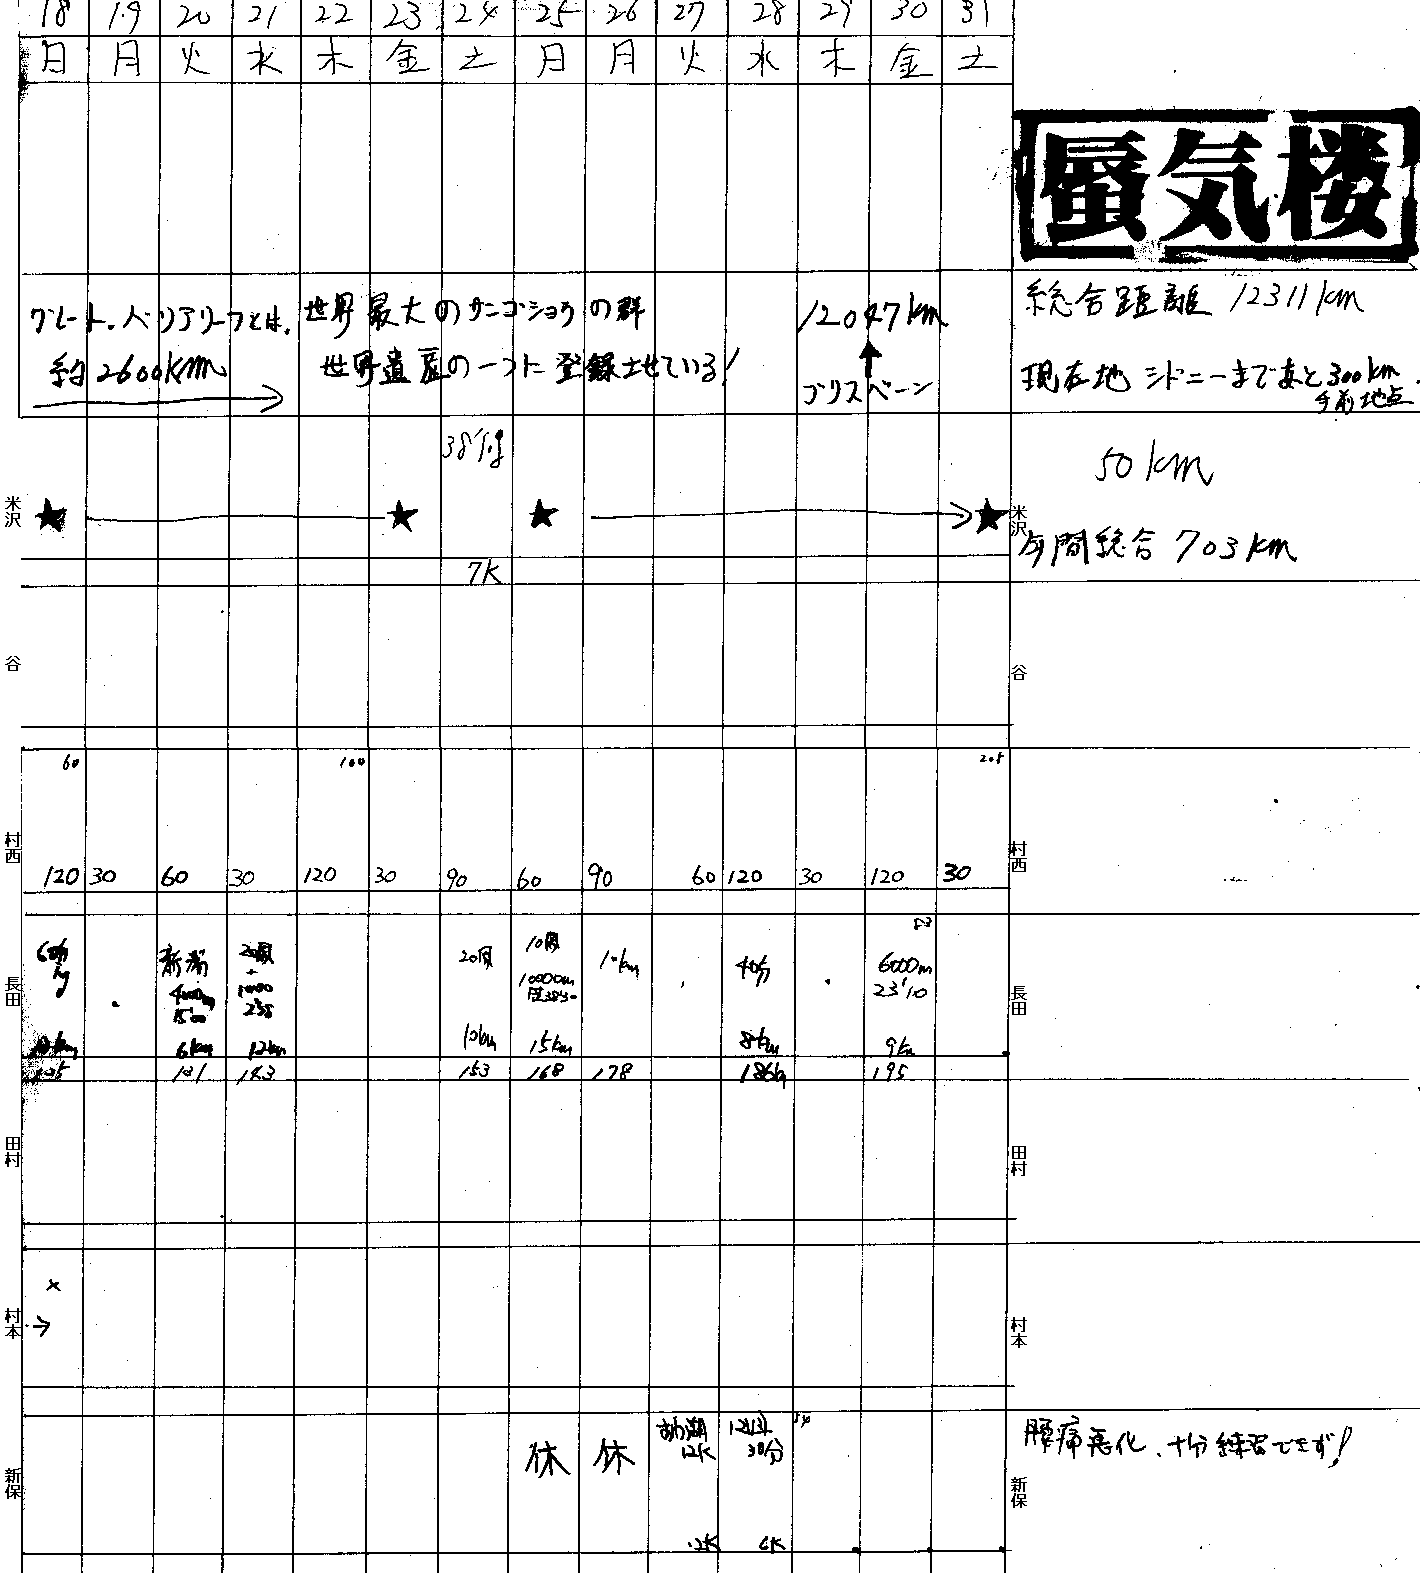 18 19 20 21 22 23 24 25 26 27 28 29 30 31
日 月 火 水 木 金 土 日 月 火 水 木 金 土
蜃気楼
グレート.バリアリーフとは. 世界最大のサンゴショウの群
約2600km 世界遺産の一つに登録させている!
12047km
ブリスベーン
総合距離 12311km
現在地 シドニーまであと300km
手前地点
米沢
38'
7K
米沢
50km
年間総合 703km
谷
谷
村西
60 100 205
120 30 60 30 120 30 90 60 90 60 120 30 120 30
村西
長田
20周 10周 10km 40分 6000m
10000m 23'10
6km 12km 10km 15km 8km 9km
153 168 178 186 195
長田
田村
田村
村本
×
→
村本
新保
休 休 12K 30分
12K 6K
腰痛悪化、十分練習できず!
新保